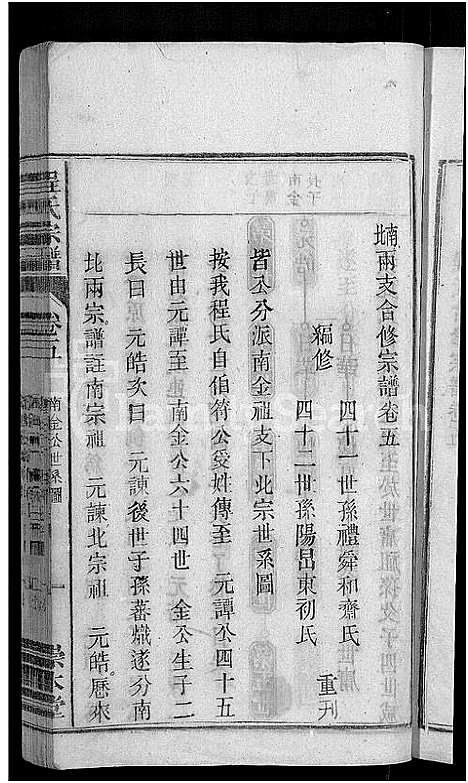 南北兩支合修宗譜卷五
四十一世孫禮舜和齋氏
編修
四十二世孫陽昌東初氏
重刋
皆公分派南金祖支下北宗世系圖
按我程氏自伯符公受姓傳至 元譚公四十五
世由元譚至 南金公六十四世 金公生子二
長曰 元皓次曰 元諫後世子孫蕃熾遂分南
北兩宗譜註南宗祖 元諫北宗祖 元皓歷來
程氏宗譜
卷五
南金公世系圖
一